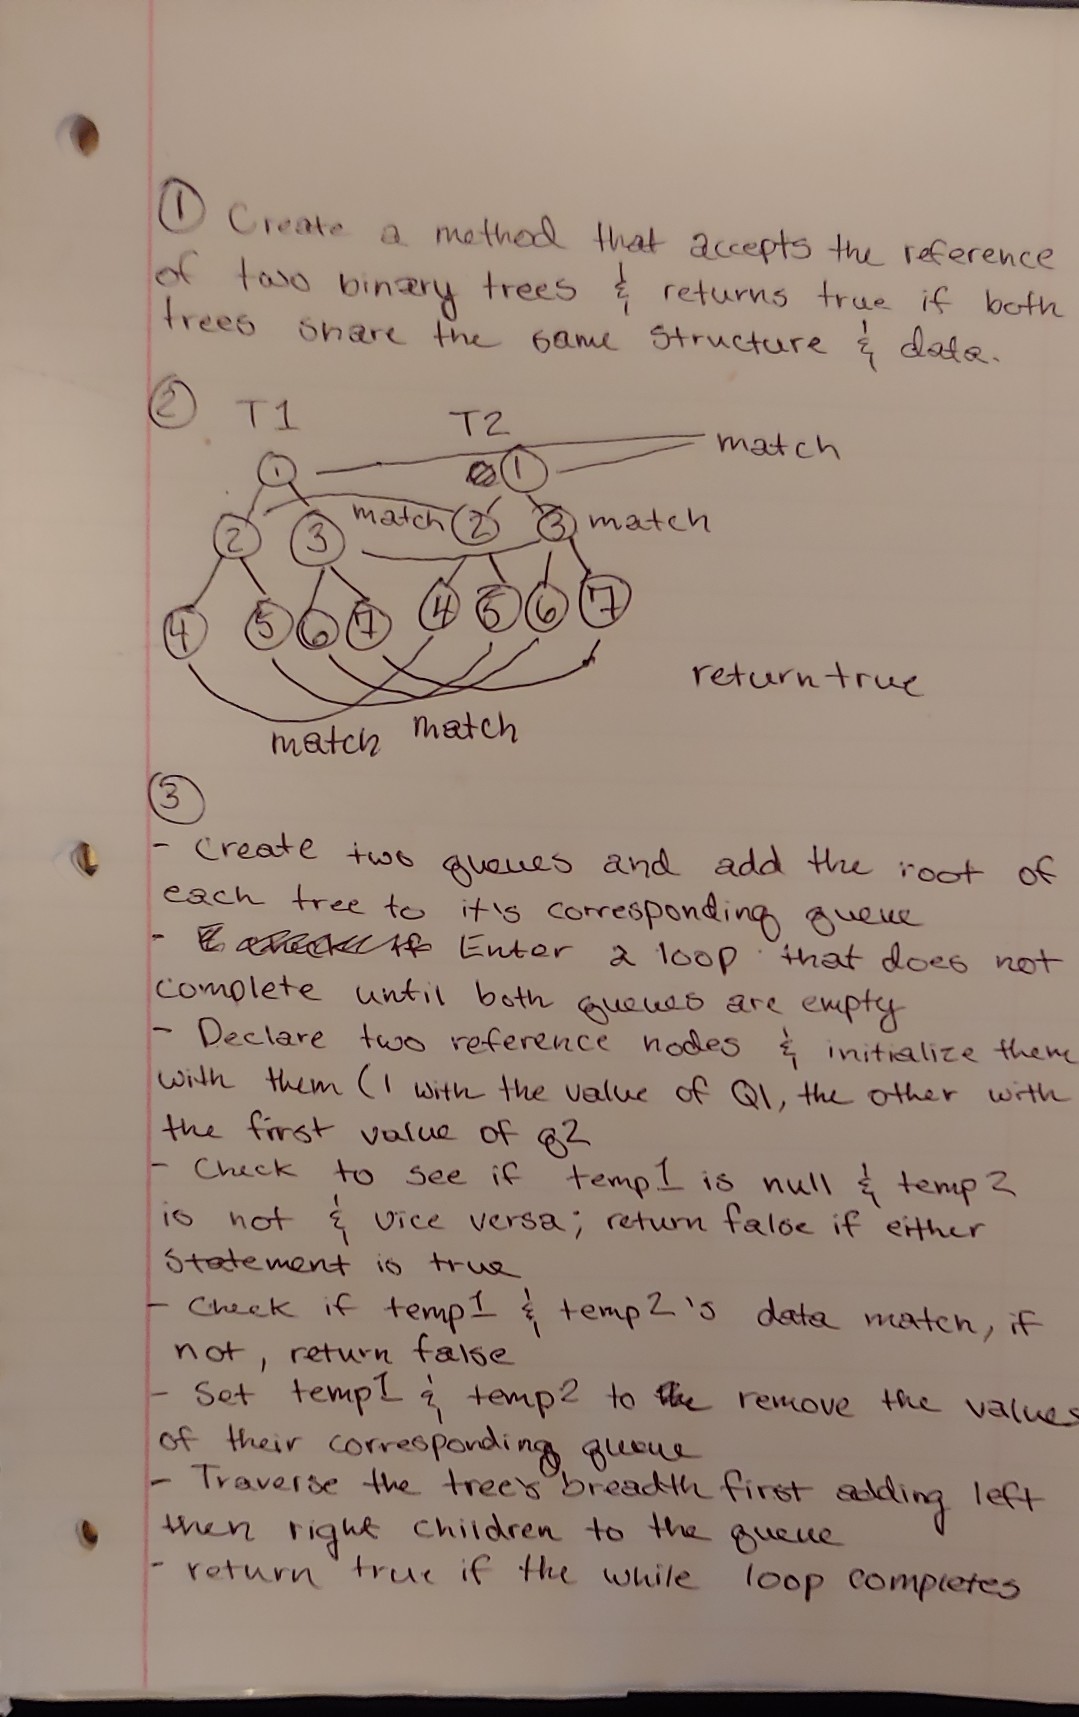 ① Create a method that accepts the reference
of two binary trees & returns true if both
trees share the same structure & data.
② T1 T2
match
1 1
2 3 match 2 3 match
4 5 6 7 4 5 6 7
return true
match match
③
- Create two queues and add the root of
each tree to it's corresponding queue
- Enter a loop that does not
complete until both queues are empty
- Declare two reference nodes & initialize them
with them (1 with the value of Q1, the other with
the first value of q2
- Check to see if temp1 is null & temp2
is not & vice versa; return false if either
statement is true
- Check if temp1 & temp2's data match, if
not, return false
- Set temp1 & temp2 to the remove the values
of their corresponding queue
- Traverse the tree's breadth first adding left
then right children to the queue
- return true if the while loop completes